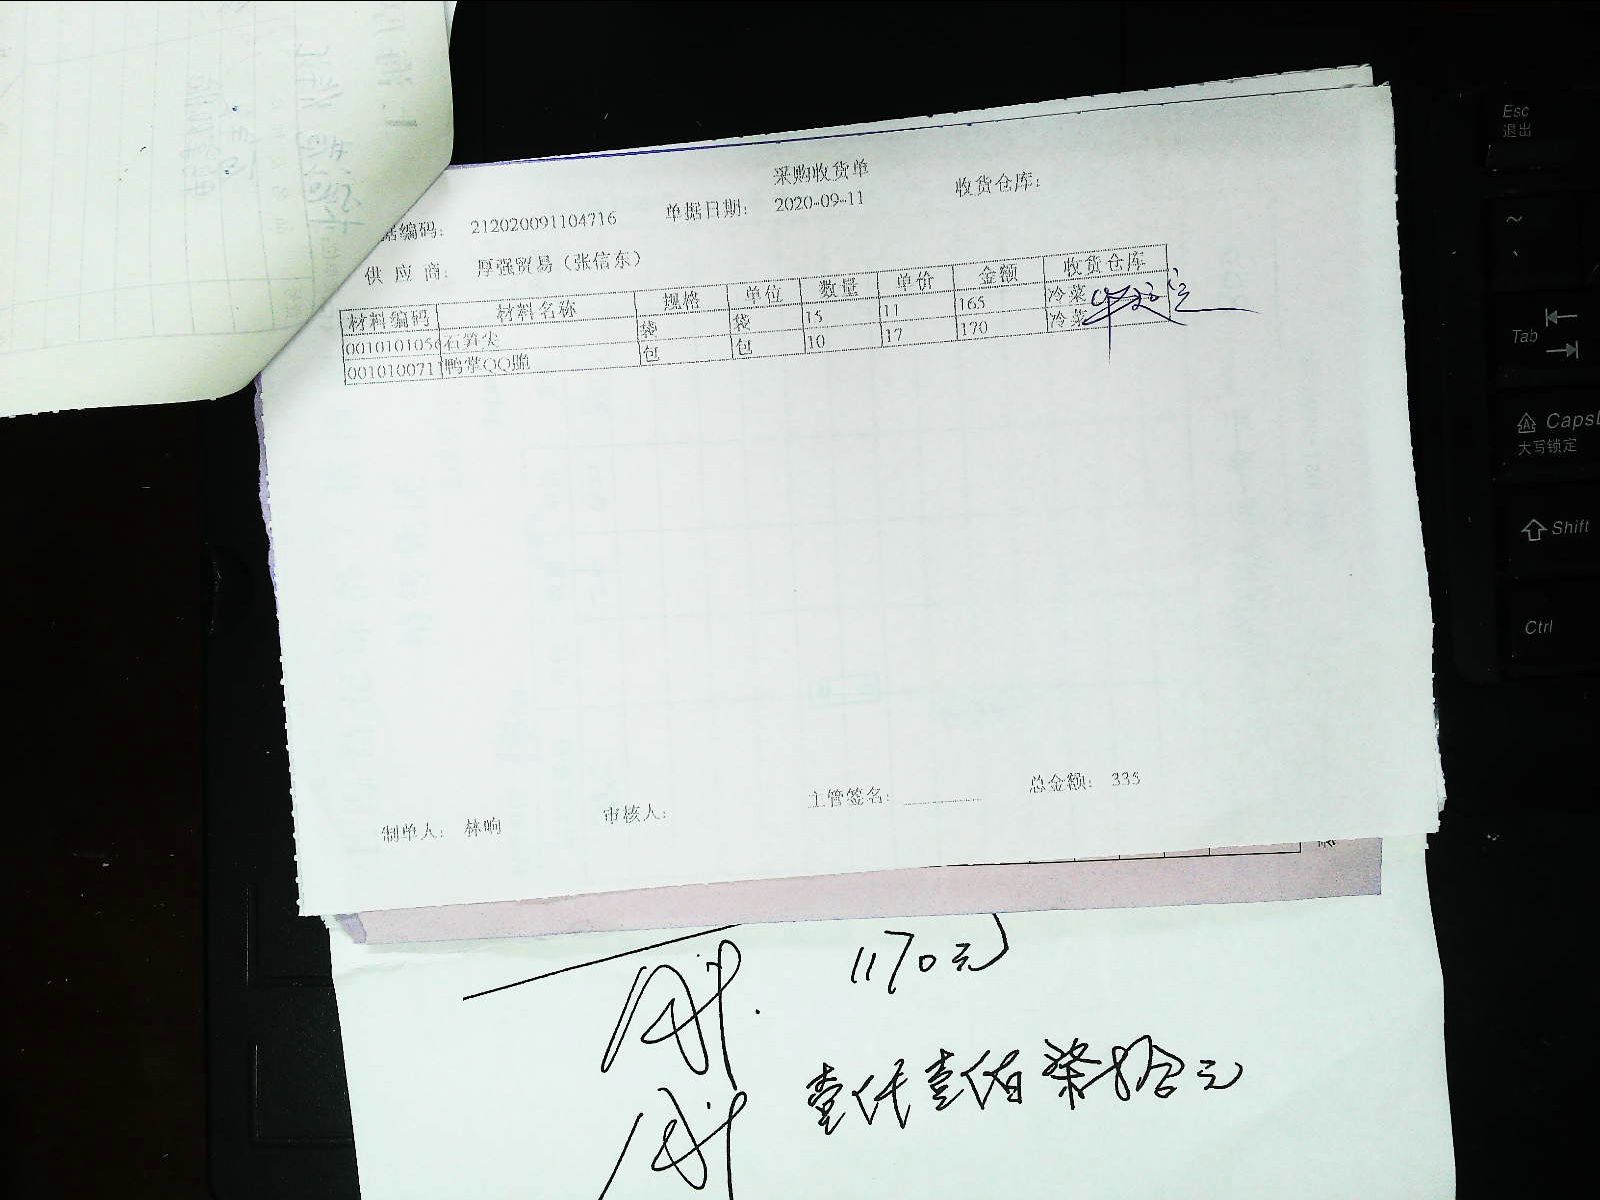 采购收货单
据编码: 212020091104716 单据日期: 2020-09-11 收货仓库:
供应商: 厚强贸易(张信东)
材料编码 材料名称 规格 单位 数量 单价 金额 收货仓库
0010101056 石笋尖 袋 袋 15 11 165 冷菜
001010071 鸭掌QQ脆 包 包 10 17 170 冷菜
制单人: 林响 审核人: 主管签名: 总金额: 335
1170元
壹仟壹佰柒拾元
Esc
退出
~
Tab
CapsL
大写锁定
Shift
Ctrl